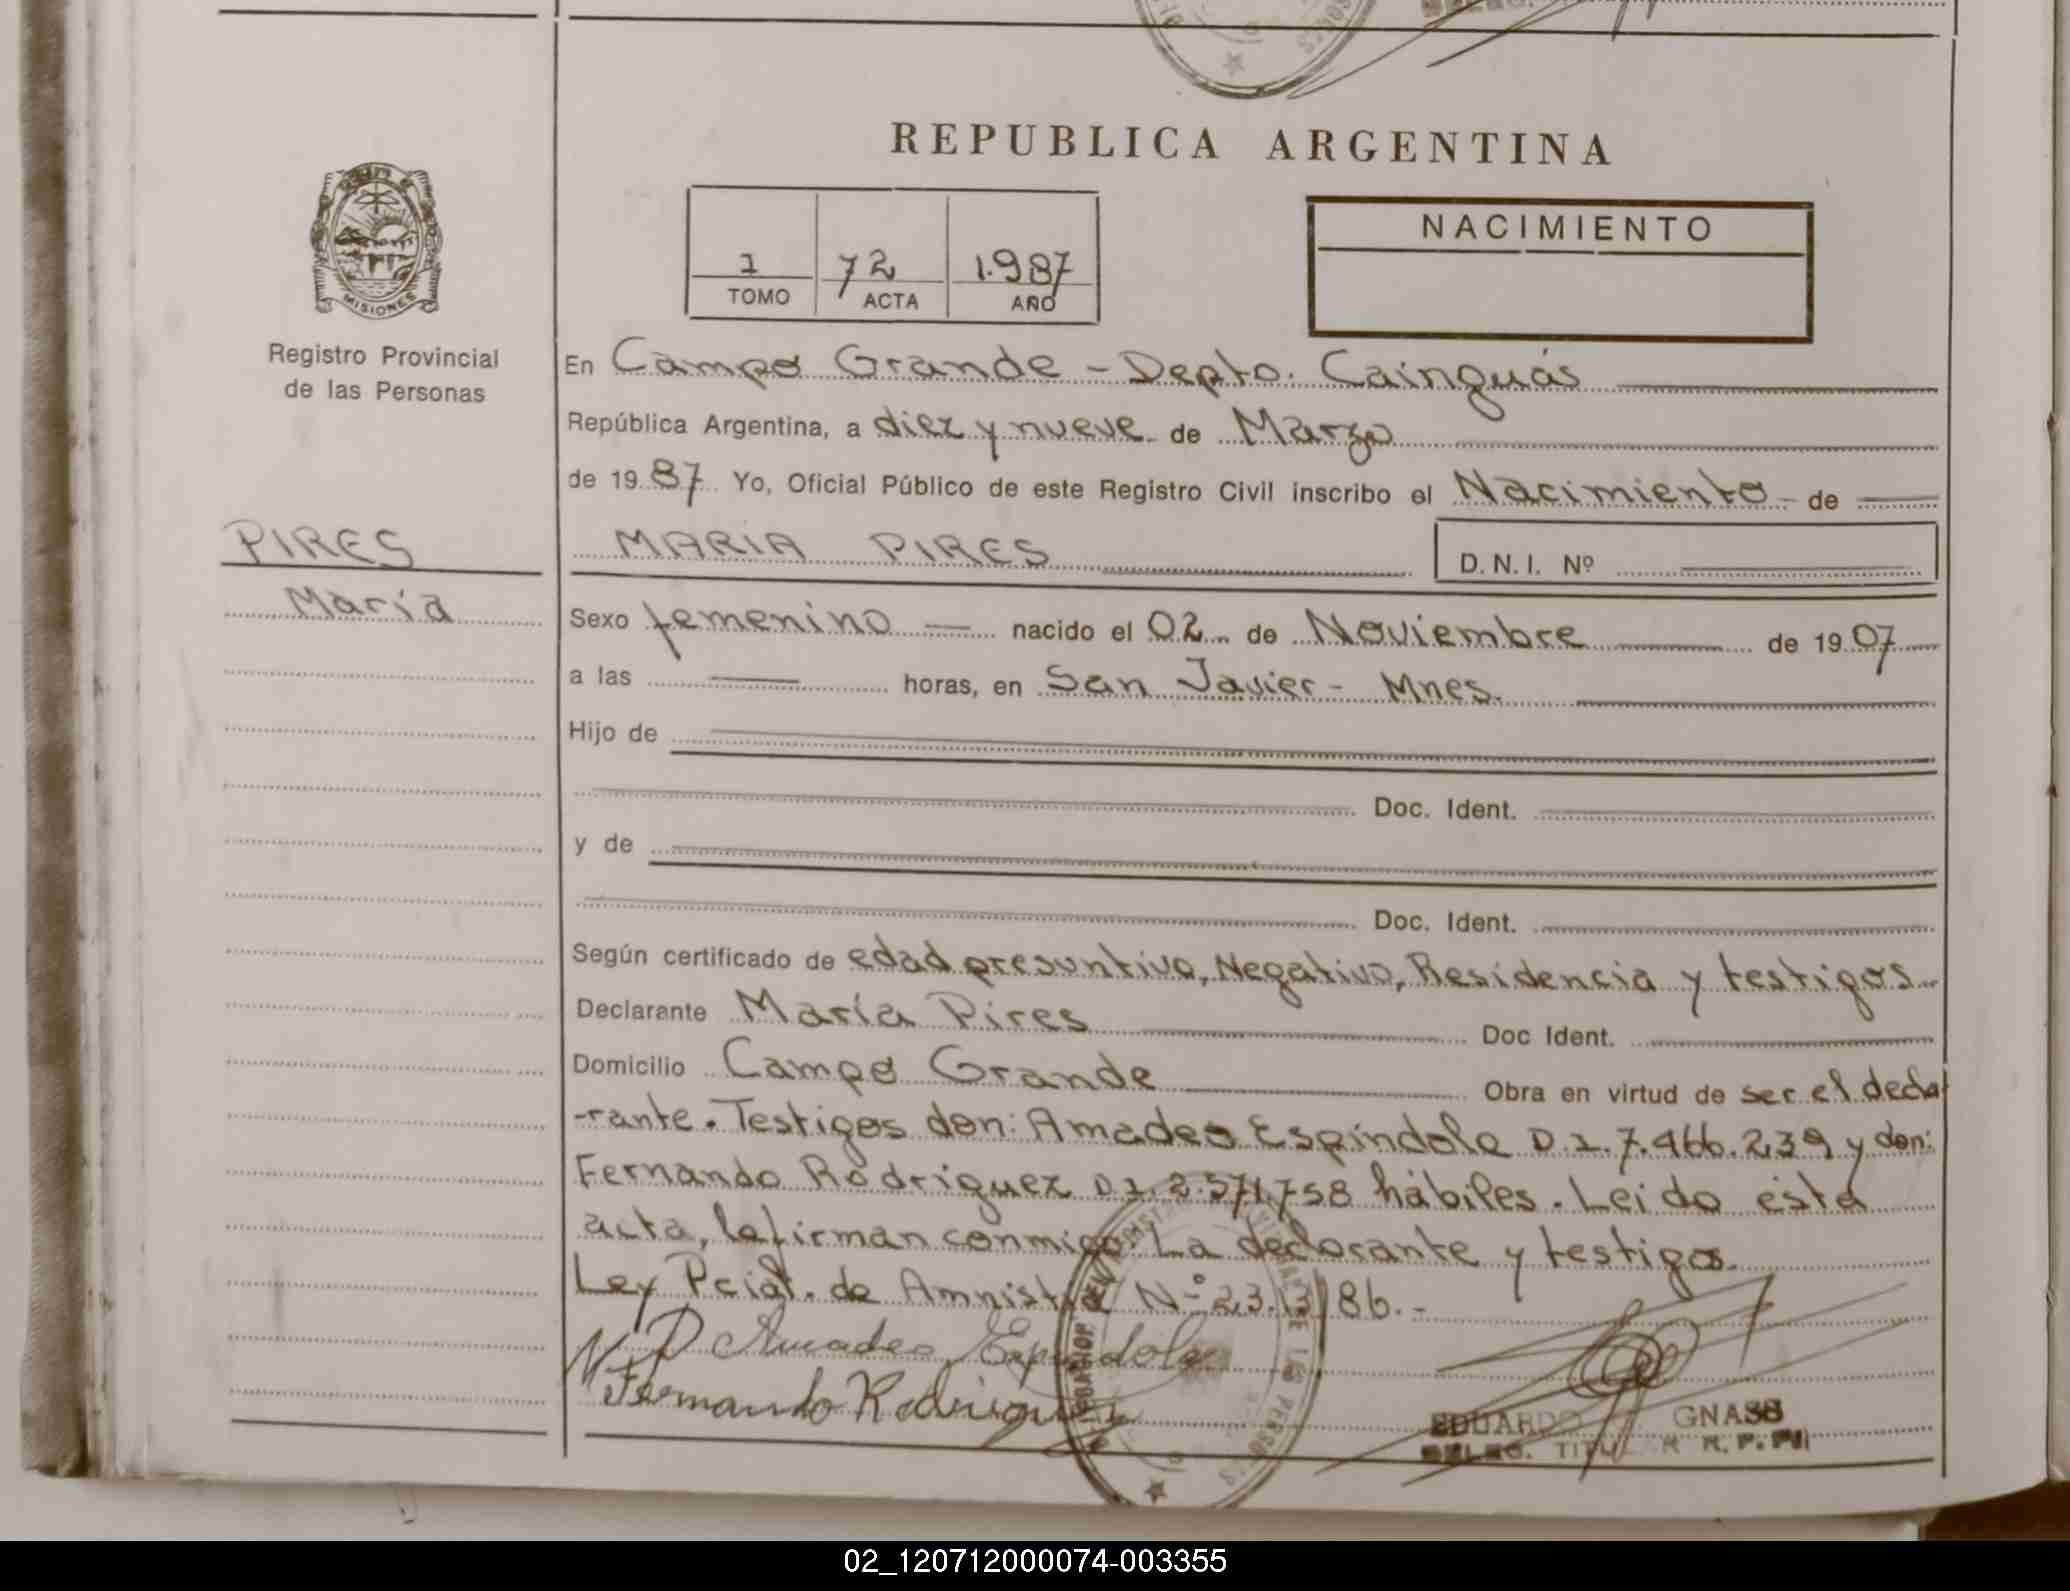 REPUBLICA ARGENTINA
1 72 1.987
TOMO ACTA AÑO
NACIMIENTO
MISIONES
Registro Provincial
de las Personas
PIRES
María
En Campo Grande - Depto. Cainguás
República Argentina, a diez y nueve de Marzo
de 1987 Yo, Oficial Público de este Registro Civil inscribo el Nacimiento de
MARIA PIRES D.N.I. Nº
Sexo femenino nacido el 02 de Noviembre de 1907
a las horas, en San Javier - Mnes.
Hijo de
Doc. Ident.
y de
Doc. Ident.
Según certificado de edad presuntiva, Negativo, Residencia y testigos
Declarante María Pires Doc Ident.
Domicilio Campo Grande Obra en virtud de ser el decla
-rante. Testigos don: Amadeo Espíndola D.I. 7.466.239 y don:
Fernando Rodriguez D.I. 2.571.758 hábiles. Leido ésta
acta, la firman conmigo. La declarante y testigos.
Ley Pcial. de Amnistía Nº 23.13/86.-
Amadeo Espindola
Fernando Rodriguez
EDUARDO GNASS
DELEG. TITULAR R. P. P.
02_120712000074-003355